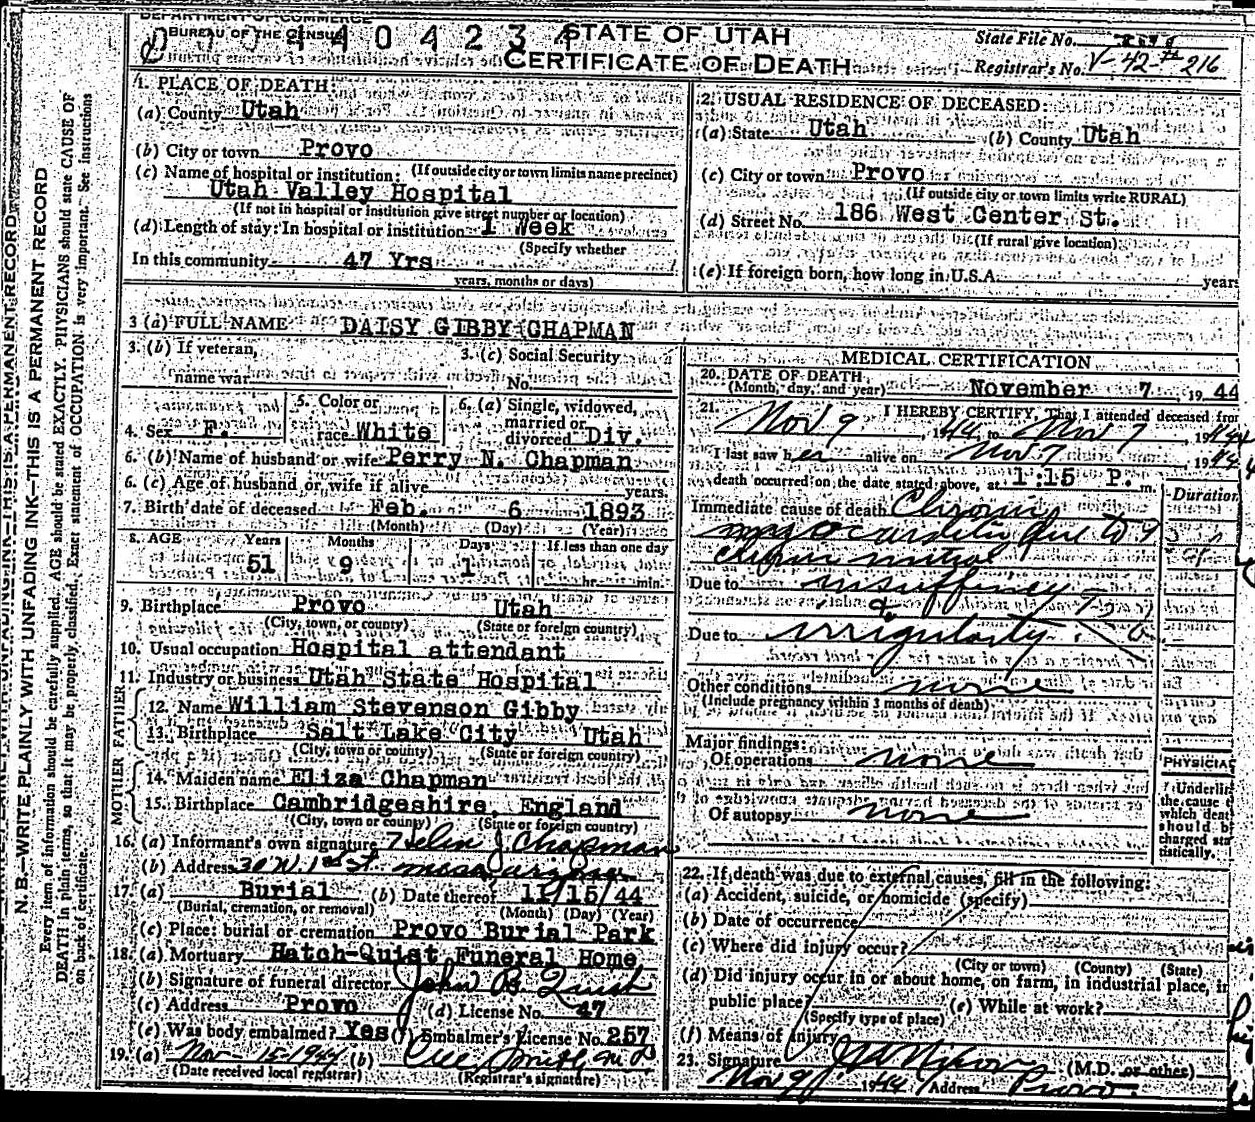 DEPARTMENT OF COMMERCE
BUREAU OF THE CENSUS
STATE OF UTAH
CERTIFICATE OF DEATH
State File No.
Registrar's No. V-42- 216
1. PLACE OF DEATH:
(a) County Utah
(b) City or town Provo
(If outside city or town limits name precinct)
(c) Name of hospital or institution:
Utah Valley Hospital
(If not in hospital or institution give street number or location)
(d) Length of stay: In hospital or institution 1 Week
(Specify whether
In this community 47 Yrs
years, months or days)
2. USUAL RESIDENCE OF DECEASED:
(a) State Utah (b) County Utah
(c) City or town Provo
(If outside city or town limits write RURAL)
(d) Street No. 186 West Center St.
(If rural give location)
(e) If foreign born, how long in U.S.A. years
3 (a) FULL NAME DAISY GIBBY CHAPMAN
3. (b) If veteran,
name war
3. (c) Social Security
No.
4. Sex F.
5. Color or
race White
6. (a) Single, widowed,
married or
divorced Div.
6. (b) Name of husband or wife Perry N. Chapman
6. (c) Age of husband or wife if alive years.
7. Birth date of deceased Feb. 6 1893
(Month) (Day) (Year)
8. AGE Years Months Days If less than one day
51 9 1 hr. min.
9. Birthplace Provo Utah
(City, town, or county) (State or foreign country)
10. Usual occupation Hospital attendant
11. Industry or business Utah State Hospital
FATHER
12. Name William Stevenson Gibby
13. Birthplace Salt Lake City Utah
(City, town or county) (State or foreign country)
MOTHER
14. Maiden name Eliza Chapman
15. Birthplace Cambridgeshire, England
(City, town or county) (State or foreign country)
16. (a) Informant's own signature Helen J Chapman
(b) Address 30 W. 1st St. mesa arizona
17. (a) Burial (b) Date thereof 11/15/44
(Burial, cremation, or removal) (Month) (Day) (Year)
(c) Place: burial or cremation Provo Burial Park
18. (a) Mortuary Hatch-Quist Funeral Home
(b) Signature of funeral director John B. Quist
(c) Address Provo (d) License No. 47
(e) Was body embalmed? Yes (f) Embalmer's License No. 257
19. (a) Nov-15-1944 (b) Smith M D
(Date received local registrar) (Registrar's signature)
MEDICAL CERTIFICATION
20. DATE OF DEATH
(Month, day, and year) November 7, 1944
21. I HEREBY CERTIFY, That I attended deceased from
Nov 9, 1944, to Nov 7, 1944
I last saw her alive on Nov 7, 1944
death occurred on the date stated above, at 1:15 P. m.
Duration
Immediate cause of death Chronic
myocarditis due to
mitral
Due to insufficiency
&
Due to irrigularity.
Other conditions none
(Include pregnancy within 3 months of death)
Major findings:
Of operations none
Of autopsy none
PHYSICIAN
Underline
the cause
which death
should be
charged sta
tistically.
22. If death was due to external causes, fill in the following:
(a) Accident, suicide, or homicide (specify)
(b) Date of occurrence
(c) Where did injury occur?
(City or town) (County) (State)
(d) Did injury occur in or about home, on farm, in industrial place, in
public place? (e) While at work?
(Specify type of place)
(f) Means of injury
23. Signature (M.D. or other)
Nov 9 1944 Address Provo.
N. B.—WRITE PLAINLY WITH UNFADING INK—THIS IS A PERMANENT RECORD
Every item of information should be carefully supplied. AGE should be stated EXACTLY. PHYSICIANS should state CAUSE OF
DEATH in plain terms, so that it may be properly classified. Exact statement of OCCUPATION is very important. See instructions
on back of certificate.